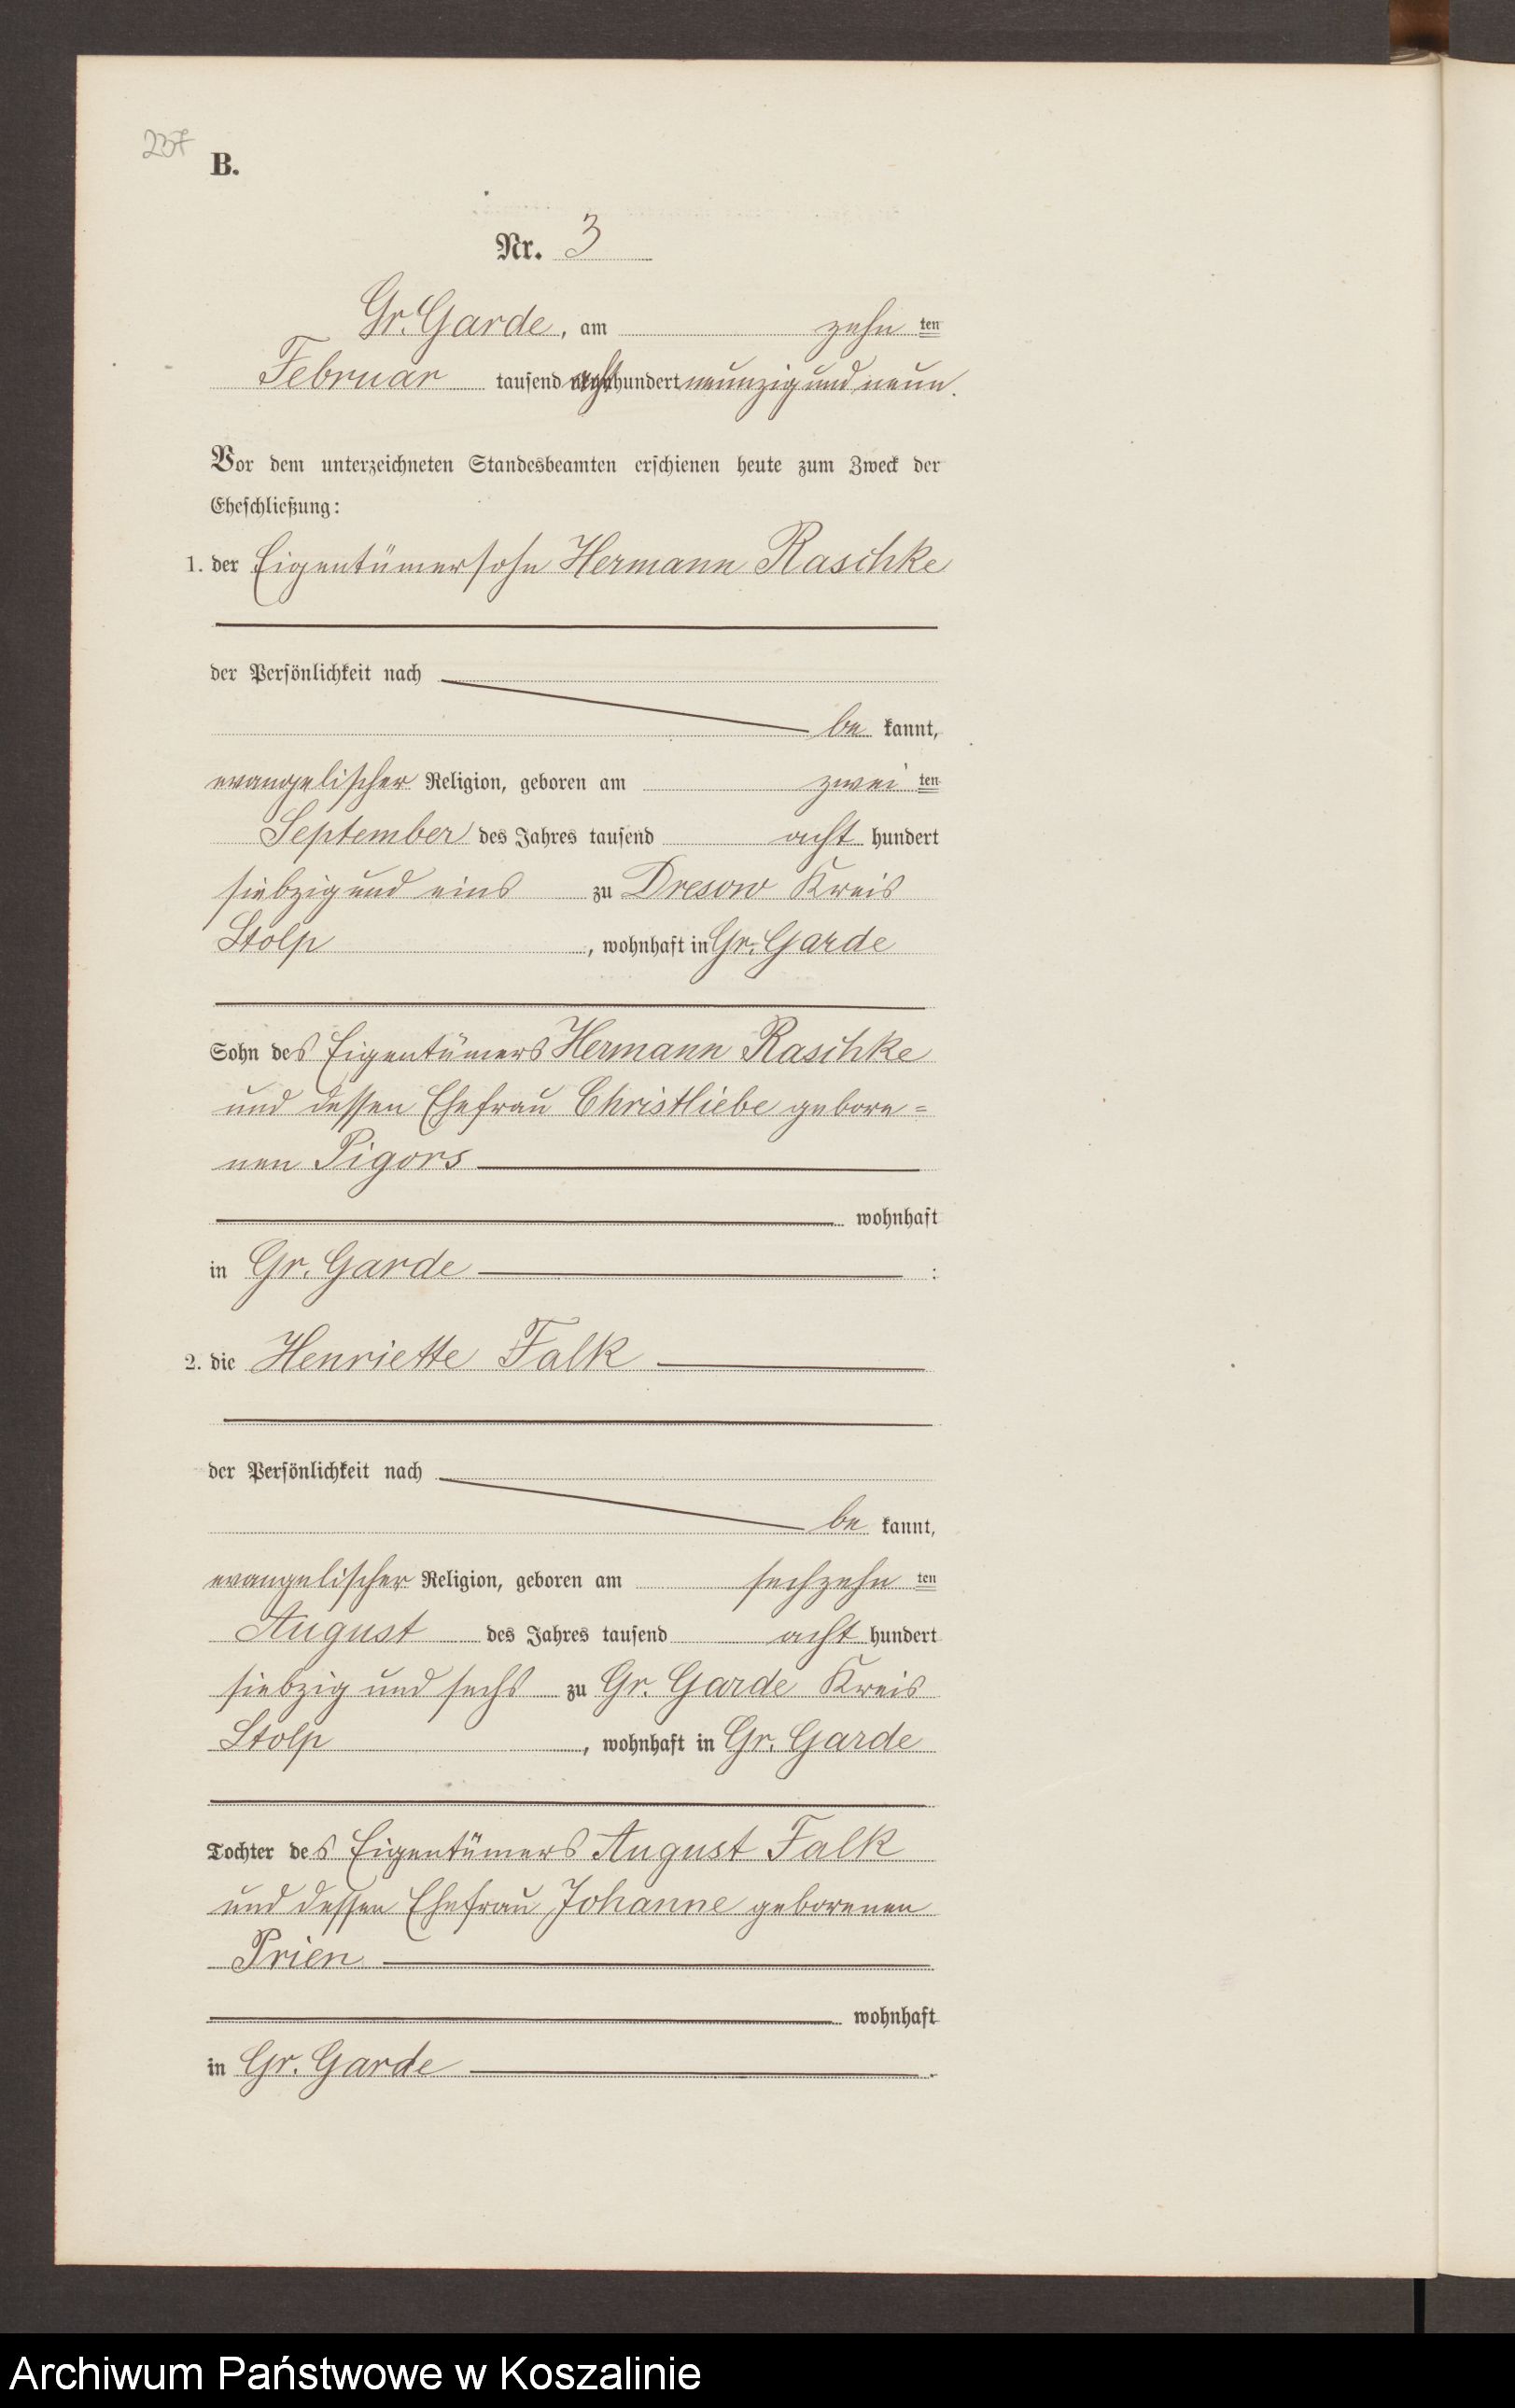 237
B.
Nr. 3
Gr. Garde, am zehn ten
Februar tausend acht hundert neunzig und neun.
Vor dem unterzeichneten Standesbeamten erschienen heute zum Zweck der
Eheschließung:
1. der Eigentümersohn Hermann Raschke
der Persönlichkeit nach
be kannt,
evangelischer Religion, geboren am zwei ten
September des Jahres tausend acht hundert
siebzig und eins zu Dresow Kreis
Stolp, wohnhaft in Gr. Garde
Sohn des Eigentümers Hermann Raschke
und dessen Ehefrau Christliebe gebore=
nen Pigors
wohnhaft
in Gr. Garde :
2. die Henriette Falk
der Persönlichkeit nach
be kannt,
evangelischer Religion, geboren am sechzehn ten
August des Jahres tausend acht hundert
siebzig und sechs zu Gr. Garde Kreis
Stolp, wohnhaft in Gr. Garde
Tochter des Eigentümers August Falk
und dessen Ehefrau Johanne geborenen
Prien
wohnhaft
in Gr. Garde .
Archiwum Państwowe w Koszalinie